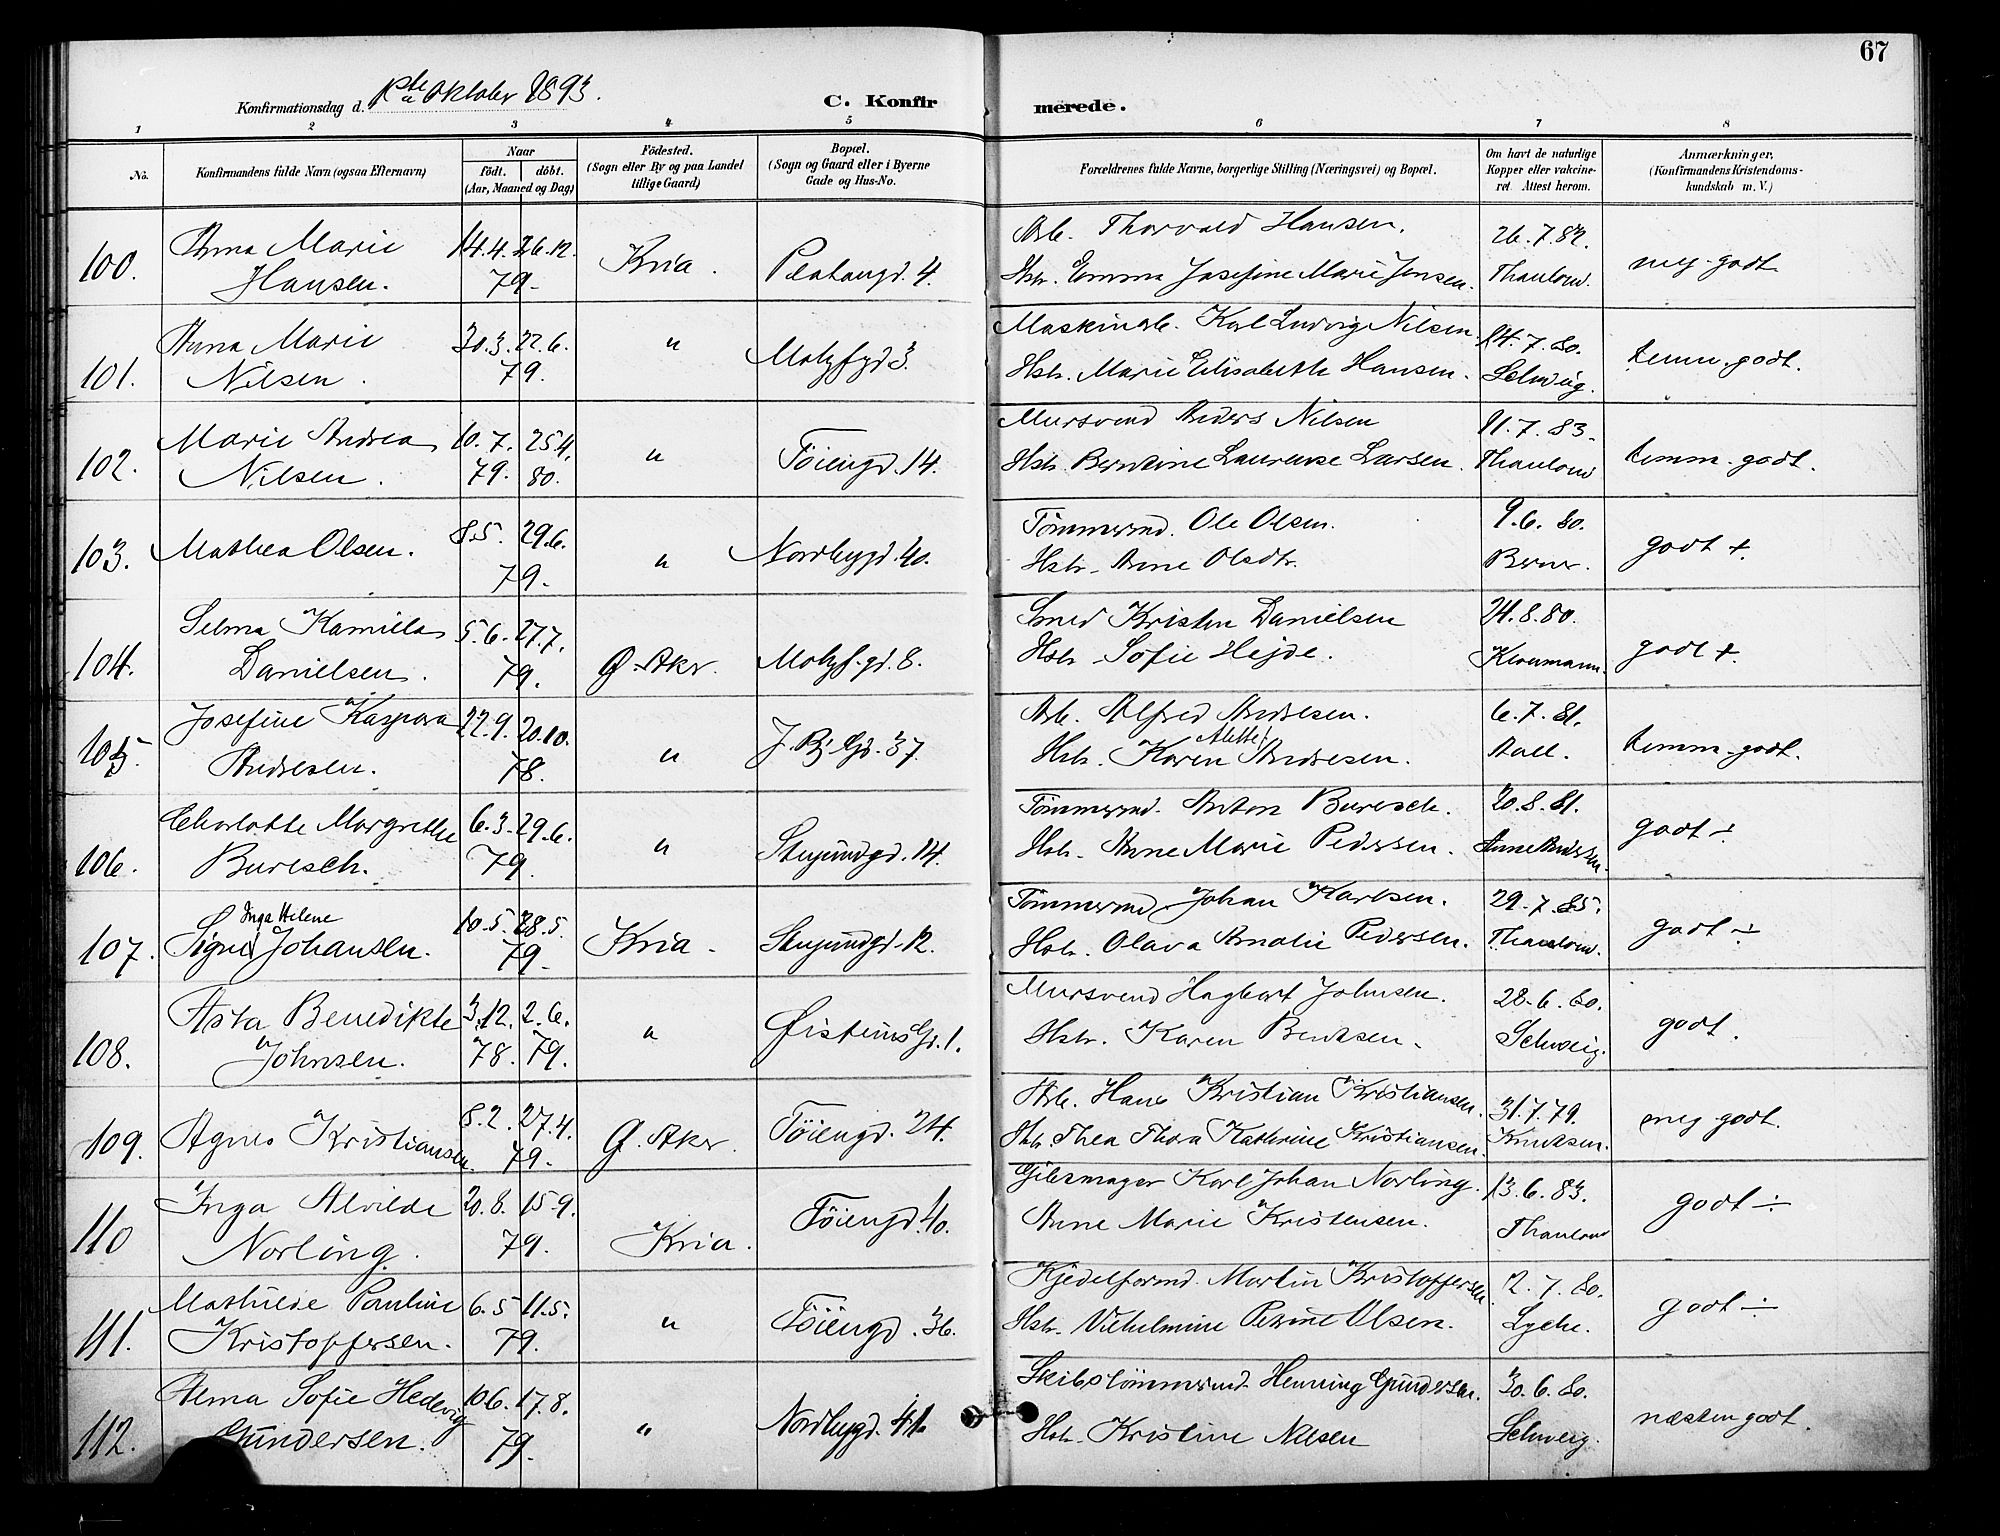 67
Konfirmationsdag d. 1ste Oktober 1893.
C. Konfirmerede.
1 2 3 4 5 6 7 8
No. Konfirmandens fulde Navn (ogsaa Efternavn) Naar født. døbt. (Aar, Maaned og Dag) Fødested. (Sogn eller By og paa Landet tillige Gaard) Bopæl. (Sogn og Gaard eller i Byerne Gade og Hus-No. Forældrenes fulde Navne, borgerlige Stilling (Næringsvei) og Bopæl. Om havt de naturlige Kopper eller vakcineret. Attest herom. Anmærkninger. (Konfirmandens Kristendomskundskab m. V.)
100. Anna Marie 14.4. 26.12. Kria. Platougd. 4. Arb. Thorvald Hansen. 26.7.82. meg. godt
Hansen. 79. Hstr. Emma Josefine Marie Jensen. Thaulow.
101. Anna Marie 30.3. 22.6. " Motzfgd 3. Maskinarb. Karl Ludvig Nilsen 14.7.80. temm. godt.
Nilsen. 79. Hstr. Marie Elisabeth Hansen. Schweig.
102. Marie Andrea 10.7. 25.4. " Töiengd. 14. Mursvend Anders Nilsen 11.7.83. temm. godt.
Nilsen. 79. 80. Hstr. Berntine Laurense Larsen. Thaulow
103. Mathea Olsen. 8.5. 29.6. " Nordbygd. 40. Tömmermd. Ole Olsen. 9.6.80. godt +.
79. Hstr. Anne Olsdtr.
104. Selma Kamilla 5.6. 27.7. Ø. Aker. Motzf. gd. 8. Smed Kristen Danielsen 24.8.80. godt +.
Danielsen. 79. Hstr. Sofie Hejde.
105. Josefine Kaspara 22.9. 20.10. " J. Bj. Gd. 37. Arb. Alfred Andresen. 6.7.81. temm. godt.
Andresen. 78. Hstr. Karen Alette Andresen. Aall.
106. Charlotte Margrethe 6.3. 29.6. " Stupundgd. 14. Tömmermd. Anton Buresch. 20.8.81. godt ÷
Buresch. 79. Hstr. Anne Marie Pedersen.
107. Signe Inga Helene Johansen. 10.5. 28.5. Kria. Stupundgd. 12. Tömmermd. Johan Karlsen. 29.7.85. godt ÷
79. Hstr. Olava Amalie Pedersen. Thaulow.
108. Asta Benedikte 3.12. 2.6. " Øisteins Gd. 1. Mursvend Hagbart Johnsen. 28.6.80. godt.
Johnsen. 78. 79. Hstr. Karen Bentsen. Schweig.
109. Agnes Kristiansen 8.2. 27.4. Ø. Aker. Töiengd. 24. Arb. Hans Kristian Kristiansen. 31.7.79. meg. godt.
79. Hstr. Thea Thora Kathrine Kristiansen. Knudsen.
110 Inga Alvilde 20.8. 15.9. Kria. Töiengd 40. Gibsmager Karl Johan Norling. 13.6.83. godt ÷
Norling. 79. Anne Marie Kristensen. Thaulow
111. Mathilde Pauline 6.5 11.5. " Töiengd. 36. Kjedelformd. Martin Kristoffersen 2.7.80. godt ÷
Kristoffersen. 79. Hstr. Vilhelmine Petrine Olsen. Lyche.
112. Alma Sofie Hedevig 10.6. 17.8. " Nordbygd. 41. Skibstömmermd. Henning Gundersen. 30.6.80. næsten godt.
Gundersen. 79. Hstr. Kristine Nilsen Schweig.